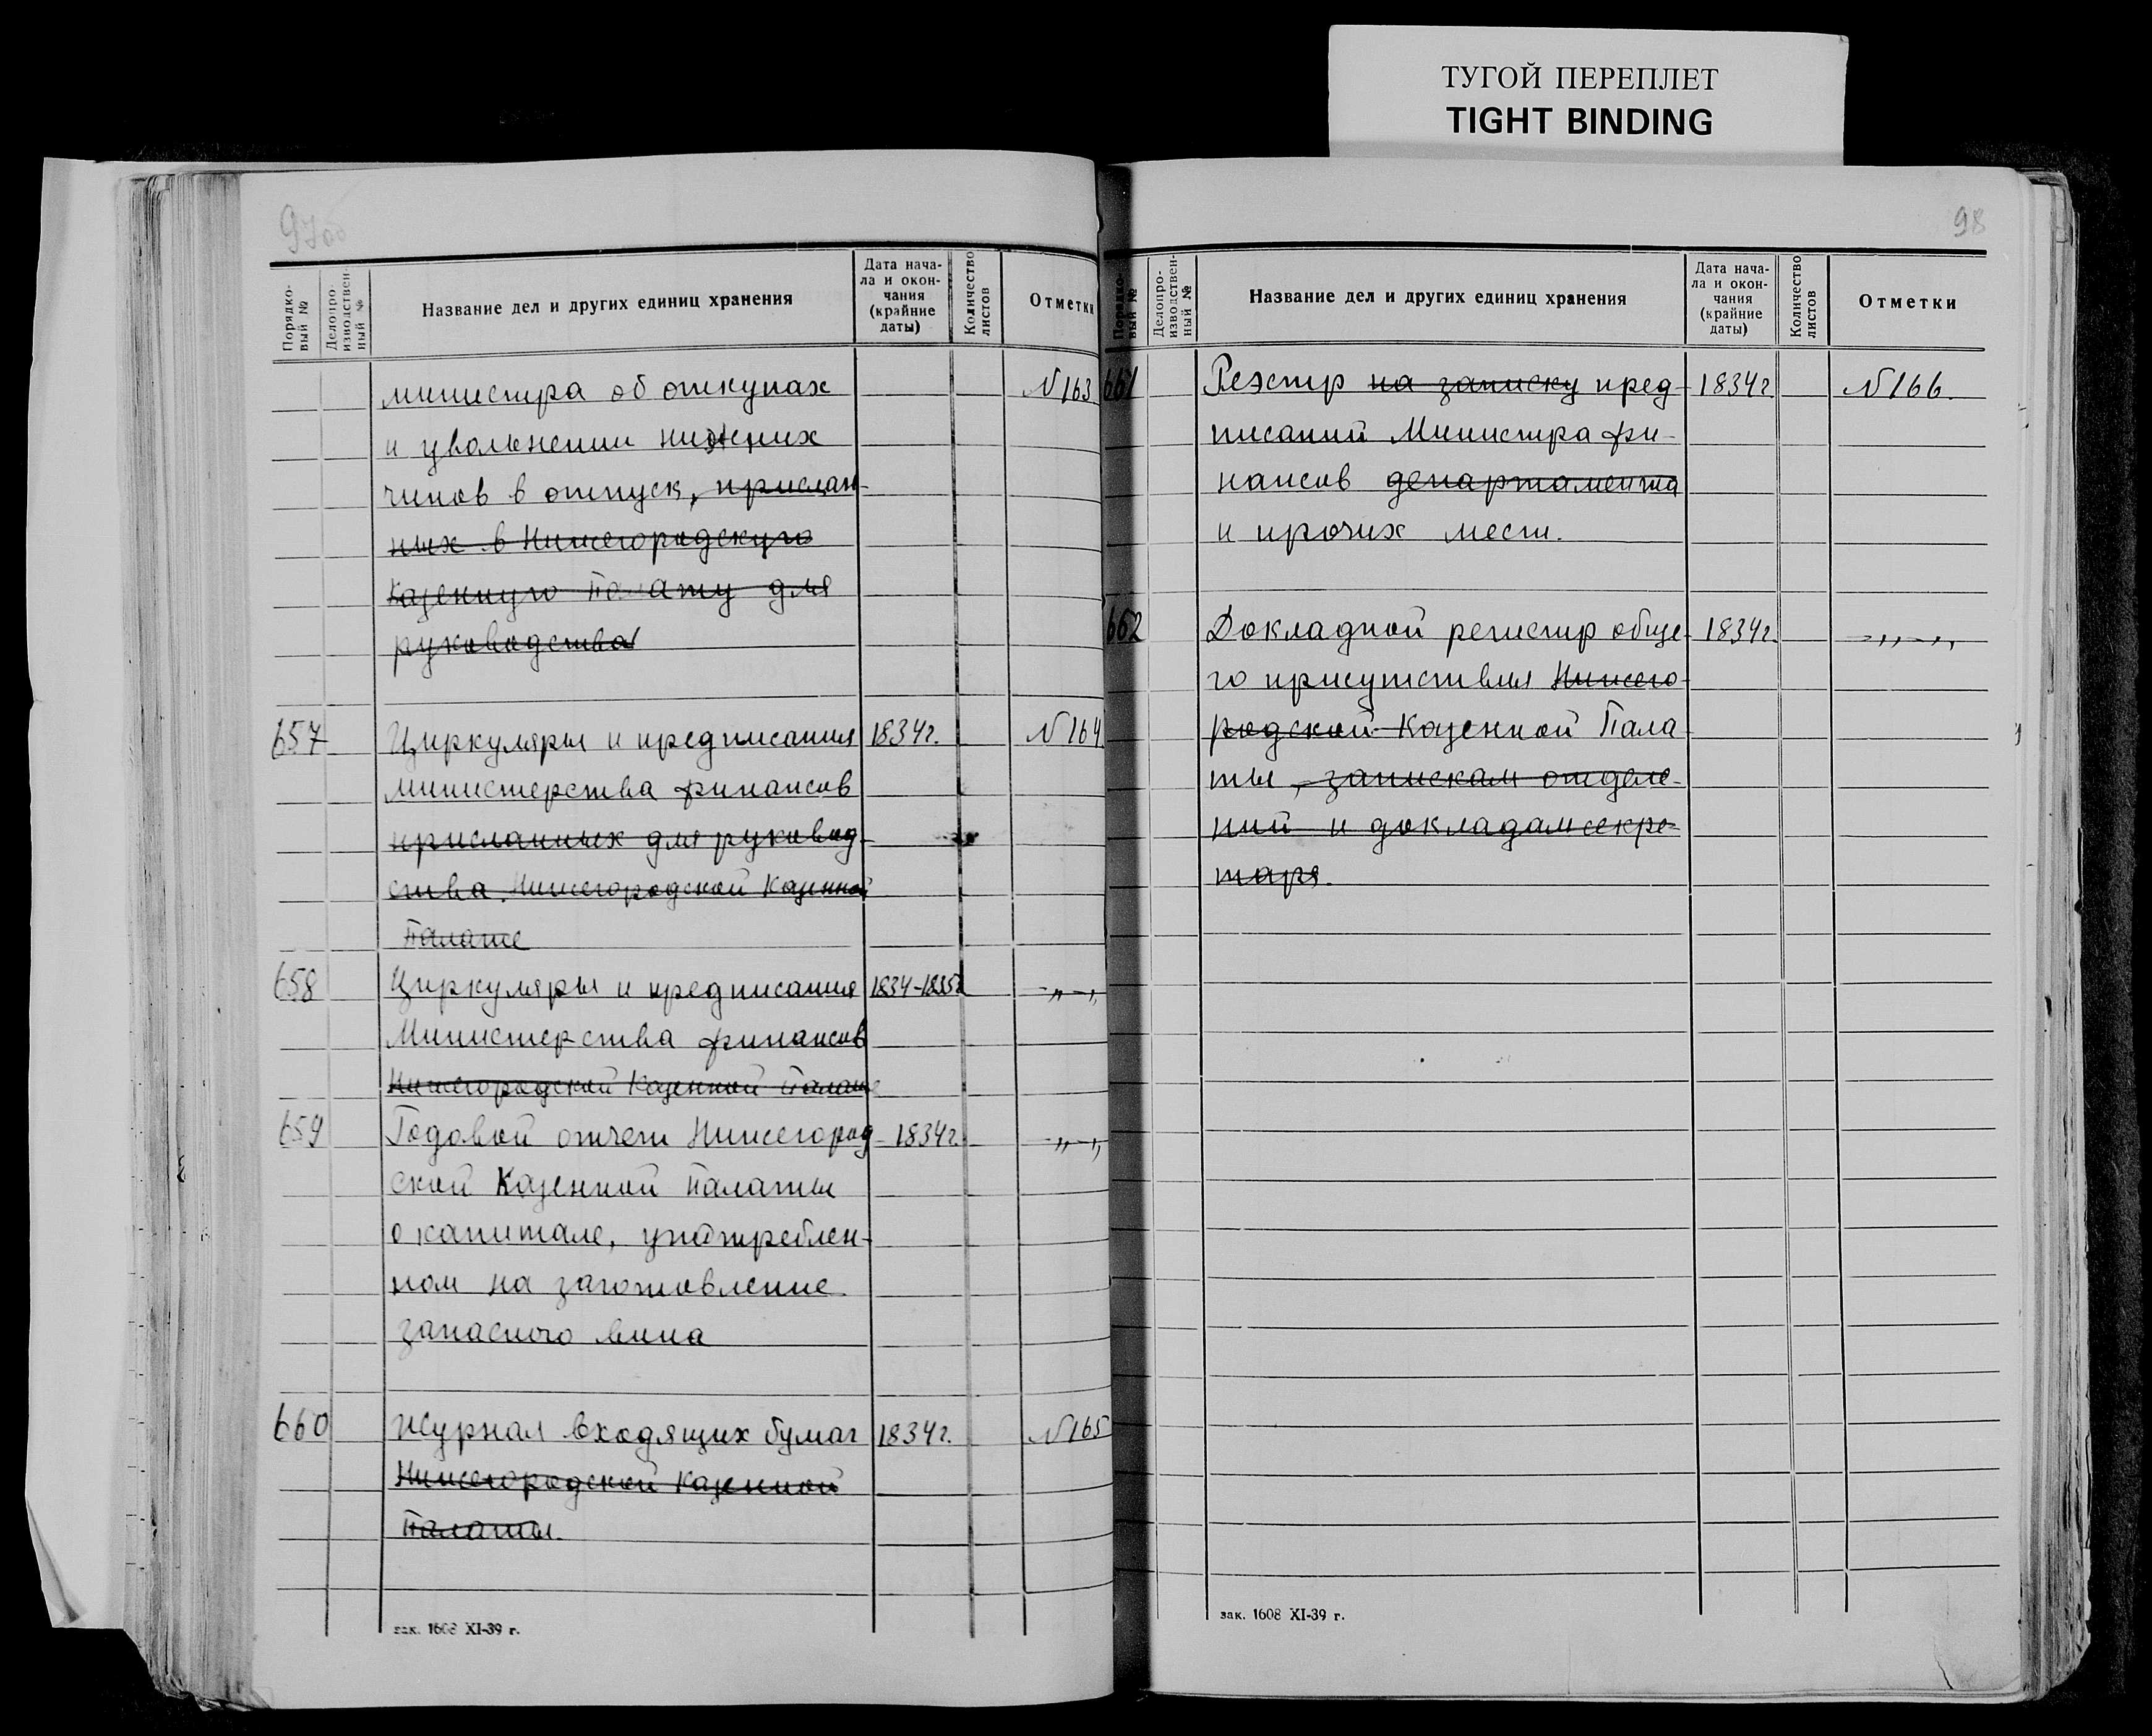 ТУГОЙ ПЕРЕПЛЕТ
TIGHT BINDING
97об
Порядко-
вый №
Делопро-
изводствен-
ный №
Название дел и других единиц хранения
Дата нача-
ла и окон-
чания
(крайние
даты)
Количество
листов
Отметки
министра об откупах № 163
и увольнении нижних
чинов в отпуск, прислан-
ных в Нижегородскую
Казенную Палату для
руководства
657 Циркуляры и предписания 1834г. № 164
министерства финансов
присланных для руковод-
ства Нижегородской Казенной
Палате
658 Циркуляры и предписания 1834-1835г. -„-„
Министерства финансов
Нижегородской Казенной Палате
659 Годовой отчет Нижегород- 1834г. -„-„
ской Казенной Палаты
о капитале, употреблен-
ном на заготовление
запасного вина
660 Журнал входящих бумаг 1834г. № 165
Нижегородской Казенной
Палаты.
зак. 1608 XI-39 г.
98
Порядко-
вый №
Делопро-
изводствен-
ный №
Название дел и других единиц хранения
Дата нача-
ла и окон-
чания
(крайние
даты)
Количество
листов
Отметки
661 Реэстр на записку пред- 1834г. № 166.
писаний Министра фи-
нансов департамента
и прочих мест.
662 Докладной регистр обще- 1834г. -„-„
го присутствия Нижего-
родской Казенной Пала-
ты, запискам отделе-
ний и докладам секре-
таря.
зак. 1608 XI-39 г.